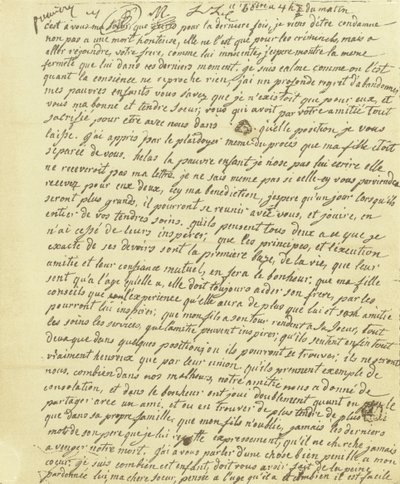 ce 16 8bre a 4 h ½ du matin
c'est a vous ma soeur que j'ecris pour la derniere fois, je viens d'etre condamnée
non pas a une mort honteuse, elle ne l'est que pour les criminels, mais a
aller rejoindre votre frere, comme lui innocente, j'espere montrer la meme
fermeté que lui dans ces derniers moments. je suis calme comme on l'est
quant la conscience ne reproche rien, j'ai un profonde regret d'abandonner
mes pauvres enfants vous savez que je n'existoit que pour eux, et
vous ma bonne et tendre Soeur, vous qui avez par votre amitié tout
sacrifié pour être avec nous dans quelle position je vous
laisse. j'ai appris par le plaidoyer meme du procès que ma fille étoit
séparée de vous, helas la pauvre enfant je n'ose pas lui ecrire elle
ne receveroit pas ma lettre. je ne sais meme pas si celle-cy vous parviendra
recevez pour eux deux, icy ma bénédiction, j'espere qu'un jour lorsqu'ils
seront plus grand, il pourront se reunir avec vous, et jouire, en
entier de vos tendres soins, qu'ils pensent tous deux a ce que je
n'ai cessé de leurs inspirer, que les principes, et l'execution
exacte de ses devoirs sont la premiere baze, de la vie, que leur
amitié et leur confiance mutuel, en fera le bonheur; que ma fille
sent qu'a l'age qu'elle a, elle doit toujours aider son frere, par les
conseils que l'experience qu'elle aura de plus que lui et son amitié
pourront lui inspirer; que mon fils a son tour rendent a sa Soeur, tout
les soins les services, que l'amitié peuvent inspirer; qu'ils sentent enfin tout
deux que dans quelques positions ou ils pourront se trouver; ils ne seront
vraiment heureux que par leur union, qu'ils prennent exemple de
nous. combien dans nos malheurs notre amitié nous a donné de
consolation, et dans le bonheur ont joui doublement quant on peut le
partager avec un ami; et ou en trouver de plus tendre de plus
que dans sa propre famille, que mon fils n'oublie, jamais les derniers
mots de son pere que je lui repette expressement, qu'il ne cherche jamais
a venger notre mort. j'ai a vous parler d'une chose bien penible a mon
coeur. je sais combien cet enfant, doit vous avoir fait de la peine
pardonnez lui, ma chere soeur, pensez a l'age qu'il a et combien il est facile